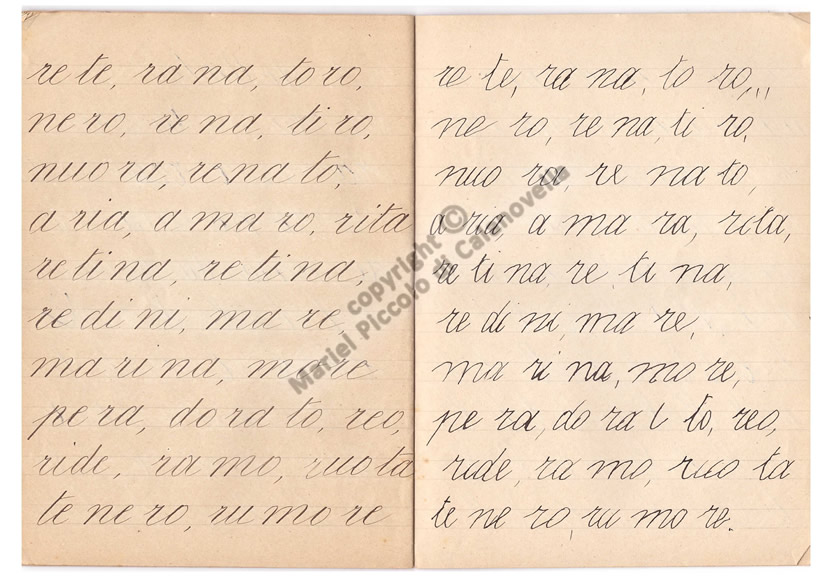 re te, ra na, to ro,
ne ro, re na, ti ro,
nuo ra, re na to,
a ria, a ma ro, rita
re ti na, re ti na,
re di ni, ma re,
ma ri na, more
pe ra, do ra to, reo,
ride, ra mo, ruo ta
te ne ro, ru mo re
re te, ra na, to ro,,,
ne ro, re na, ti ro,
nuo ra, re na to,
a ria a ma ra, rita,
re ti na, re ti na,
re di ni, ma re,
ma ri na, mo re,
pe ra, do ra l to, reo,
ride, ra mo, ruo ta
te ne ro, ru mo re.
copyright ©
Mariel Piccolo di Calanovella